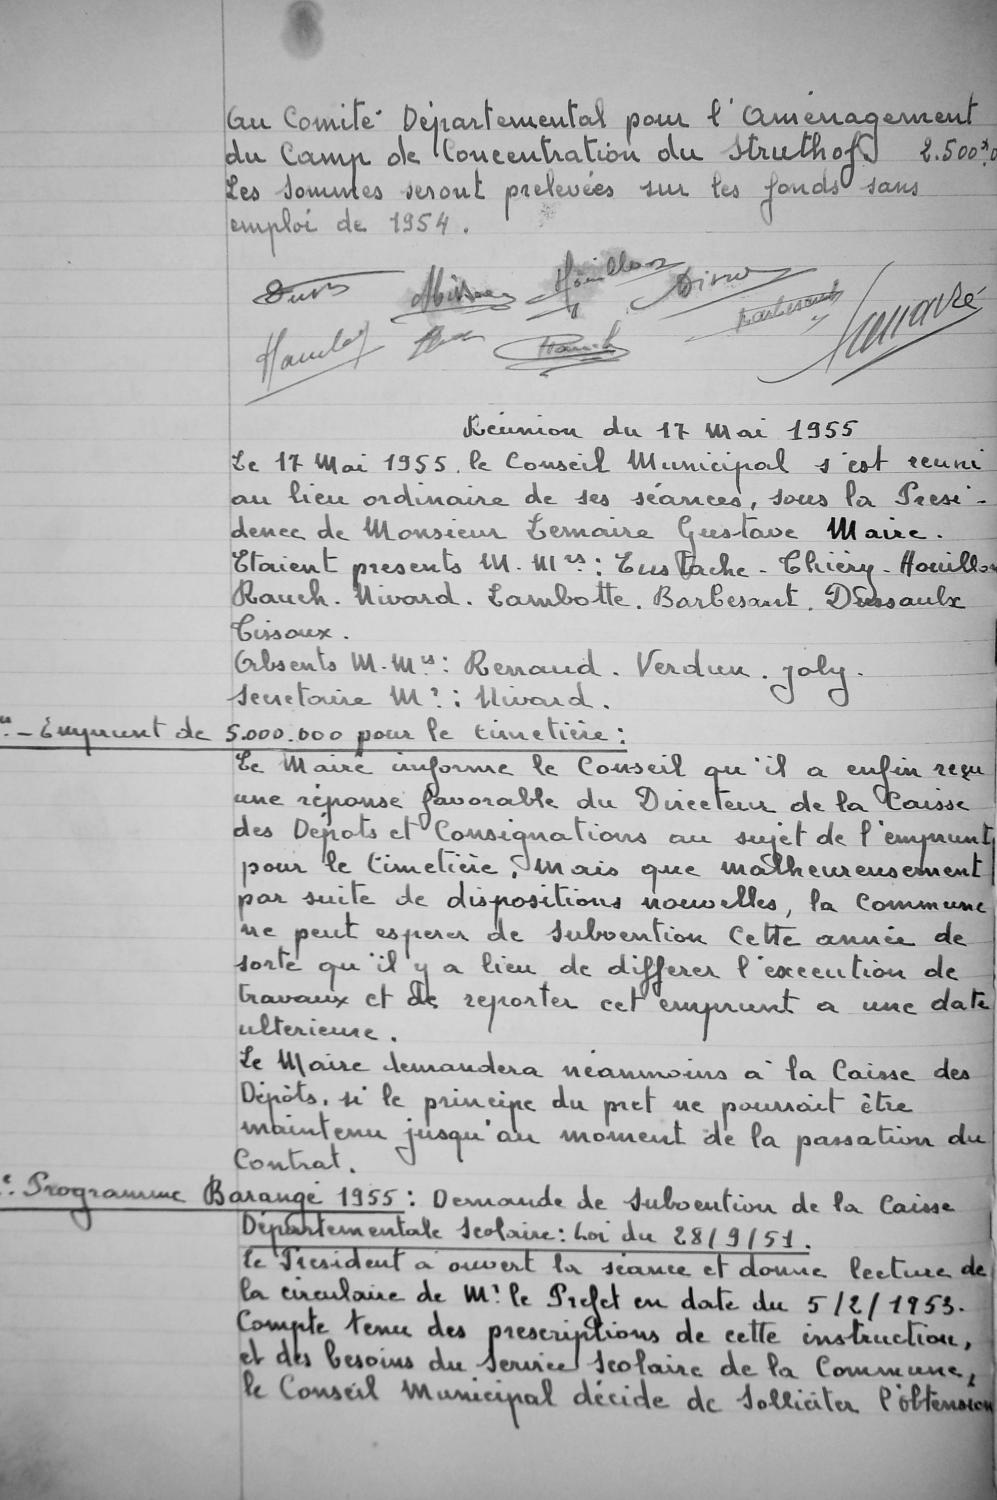 Au Comité Départemental pour l'Aménagement
du Camp de Concentration du Struthof 2.500
Les Sommes seront prelevées sur les fonds sans
emploi de 1954.
Houillon
Nivard
Barbesant
Lemaire
Rauch
Réunion du 17 Mai 1955
Le 17 Mai 1955, le Conseil Municipal s'est reuni
au lieu ordinaire de ses séances, sous la Presi-
dence de Monsieur Lemaire Gustave Maire.
Etaient presents M. Mrs : Eustache - Thiéry - Houillon
Rauch. Nivard. Lambotte. Barbesant. Dussaulx
Tissaux.
Absents M. Mrs : Renaud. Verdun. Joly.
Secretaire Mr : Nivard.
- Emprunt de 5.000.000 pour le Cimetière :
Le Maire informe le Conseil qu'il a enfin reçu
une réponse favorable du Directeur de la Caisse
des Dépots et Consignations au sujet de l'emprunt
pour le Cimetière, mais que malheureusement
par suite de dispositions nouvelles, la Commune
ne peut esperer de Subvention Cette année de
sorte qu'il y a lieu de differer l'execution de
travaux et de reporter cet emprunt a une date
ulterieure.
Le Maire demandera néanmoins à la Caisse des
Dépôts, si le principe du pret ne pourrait être
maintenu jusqu'au moment de la passation du
Contrat.
Programme Barangé 1955 : Demande de Subvention de la Caisse
Départementale Scolaire : Loi du 28/9/51.
Le President a ouvert la séance et donne lecture de
la circulaire de Mr le Prefet en date du 5/2/1953.
Compte tenu des prescriptions de cette instruction,
et des besoins du Service Scolaire de la Commune,
le Conseil Municipal décide de Solliciter l'obtension